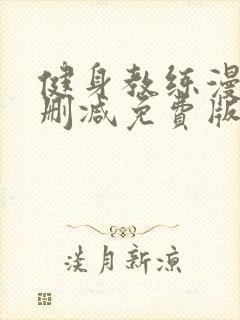 健身教练漫
删减免费版
淡月新凉